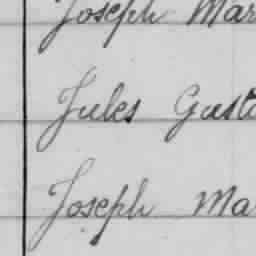 Joseph Mar
Jules Gust
Joseph Ma